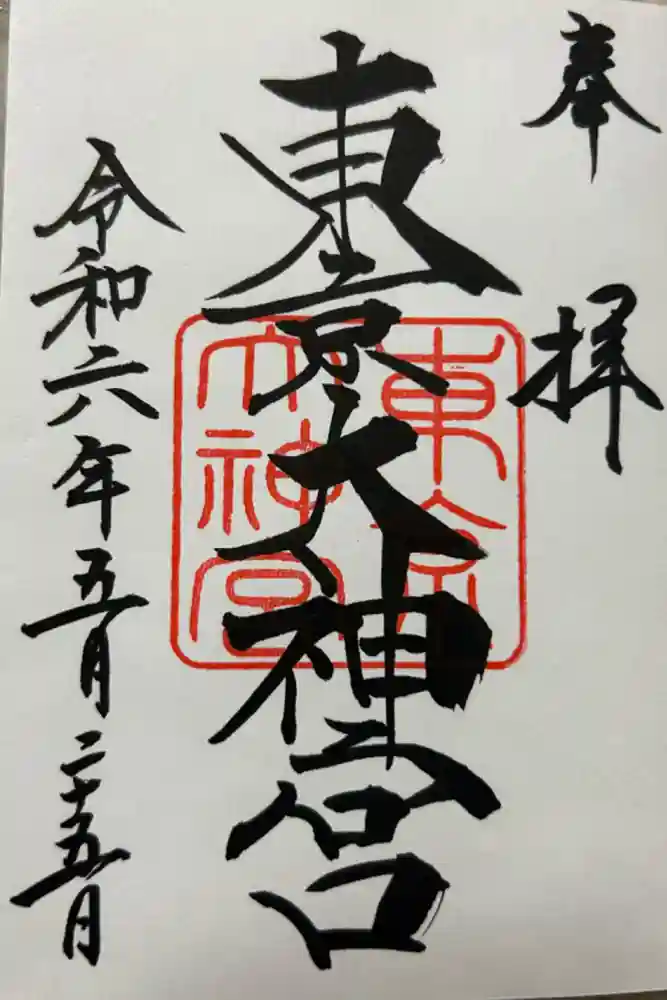 奉拝
東京大神宮
東京
大神宮
令和六年五月二十五日